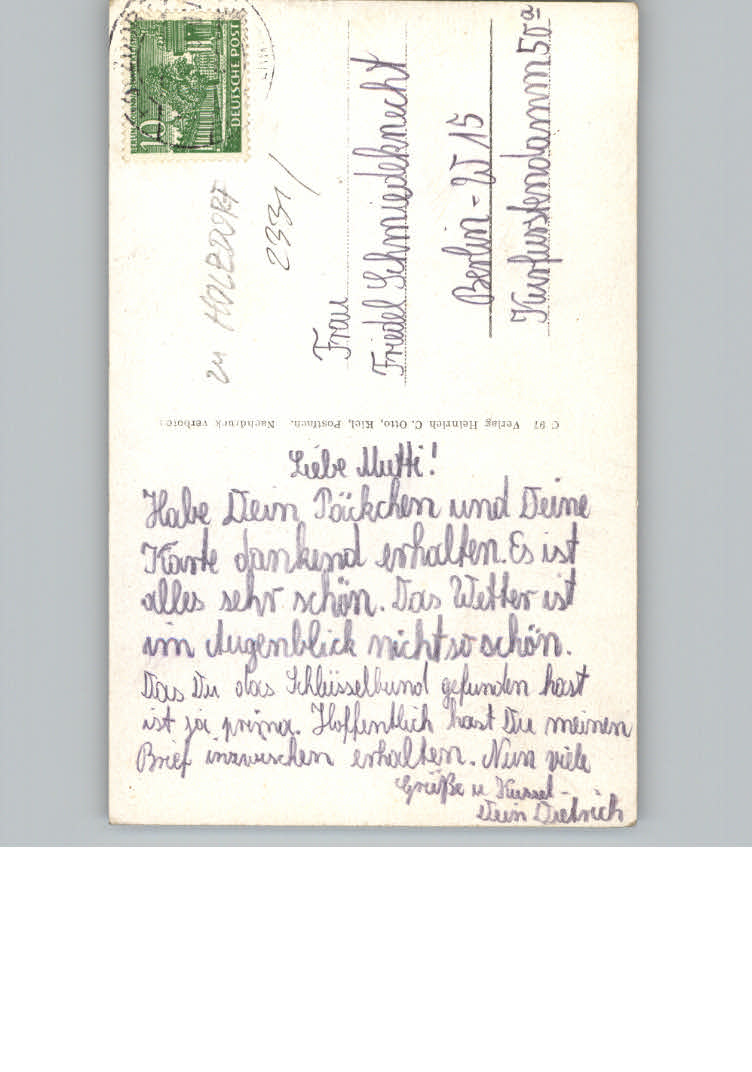 10
DEUTSCHE POST
zu HOLZDORF
2331/
Frau
Friedel Schmiedeknecht
Berlin - W 15
Kurfürstendamm 50a
C 97 Verlag Heinrich C. Otto, Kiel, Postfach. Nachdruck verboten
Liebe Mutti!
Habe Dein Päckchen und Deine
Karte dankend erhalten. Es ist
alles sehr schön. Das Wetter ist
im Augenblick nicht so schön.
Das Du das Schlüsselbund gefunden hast
ist ja prima. Hoffentlich hast Du meinen
Brief inzwischen erhalten. Nun viele
Grüße u
Dein Dietrich